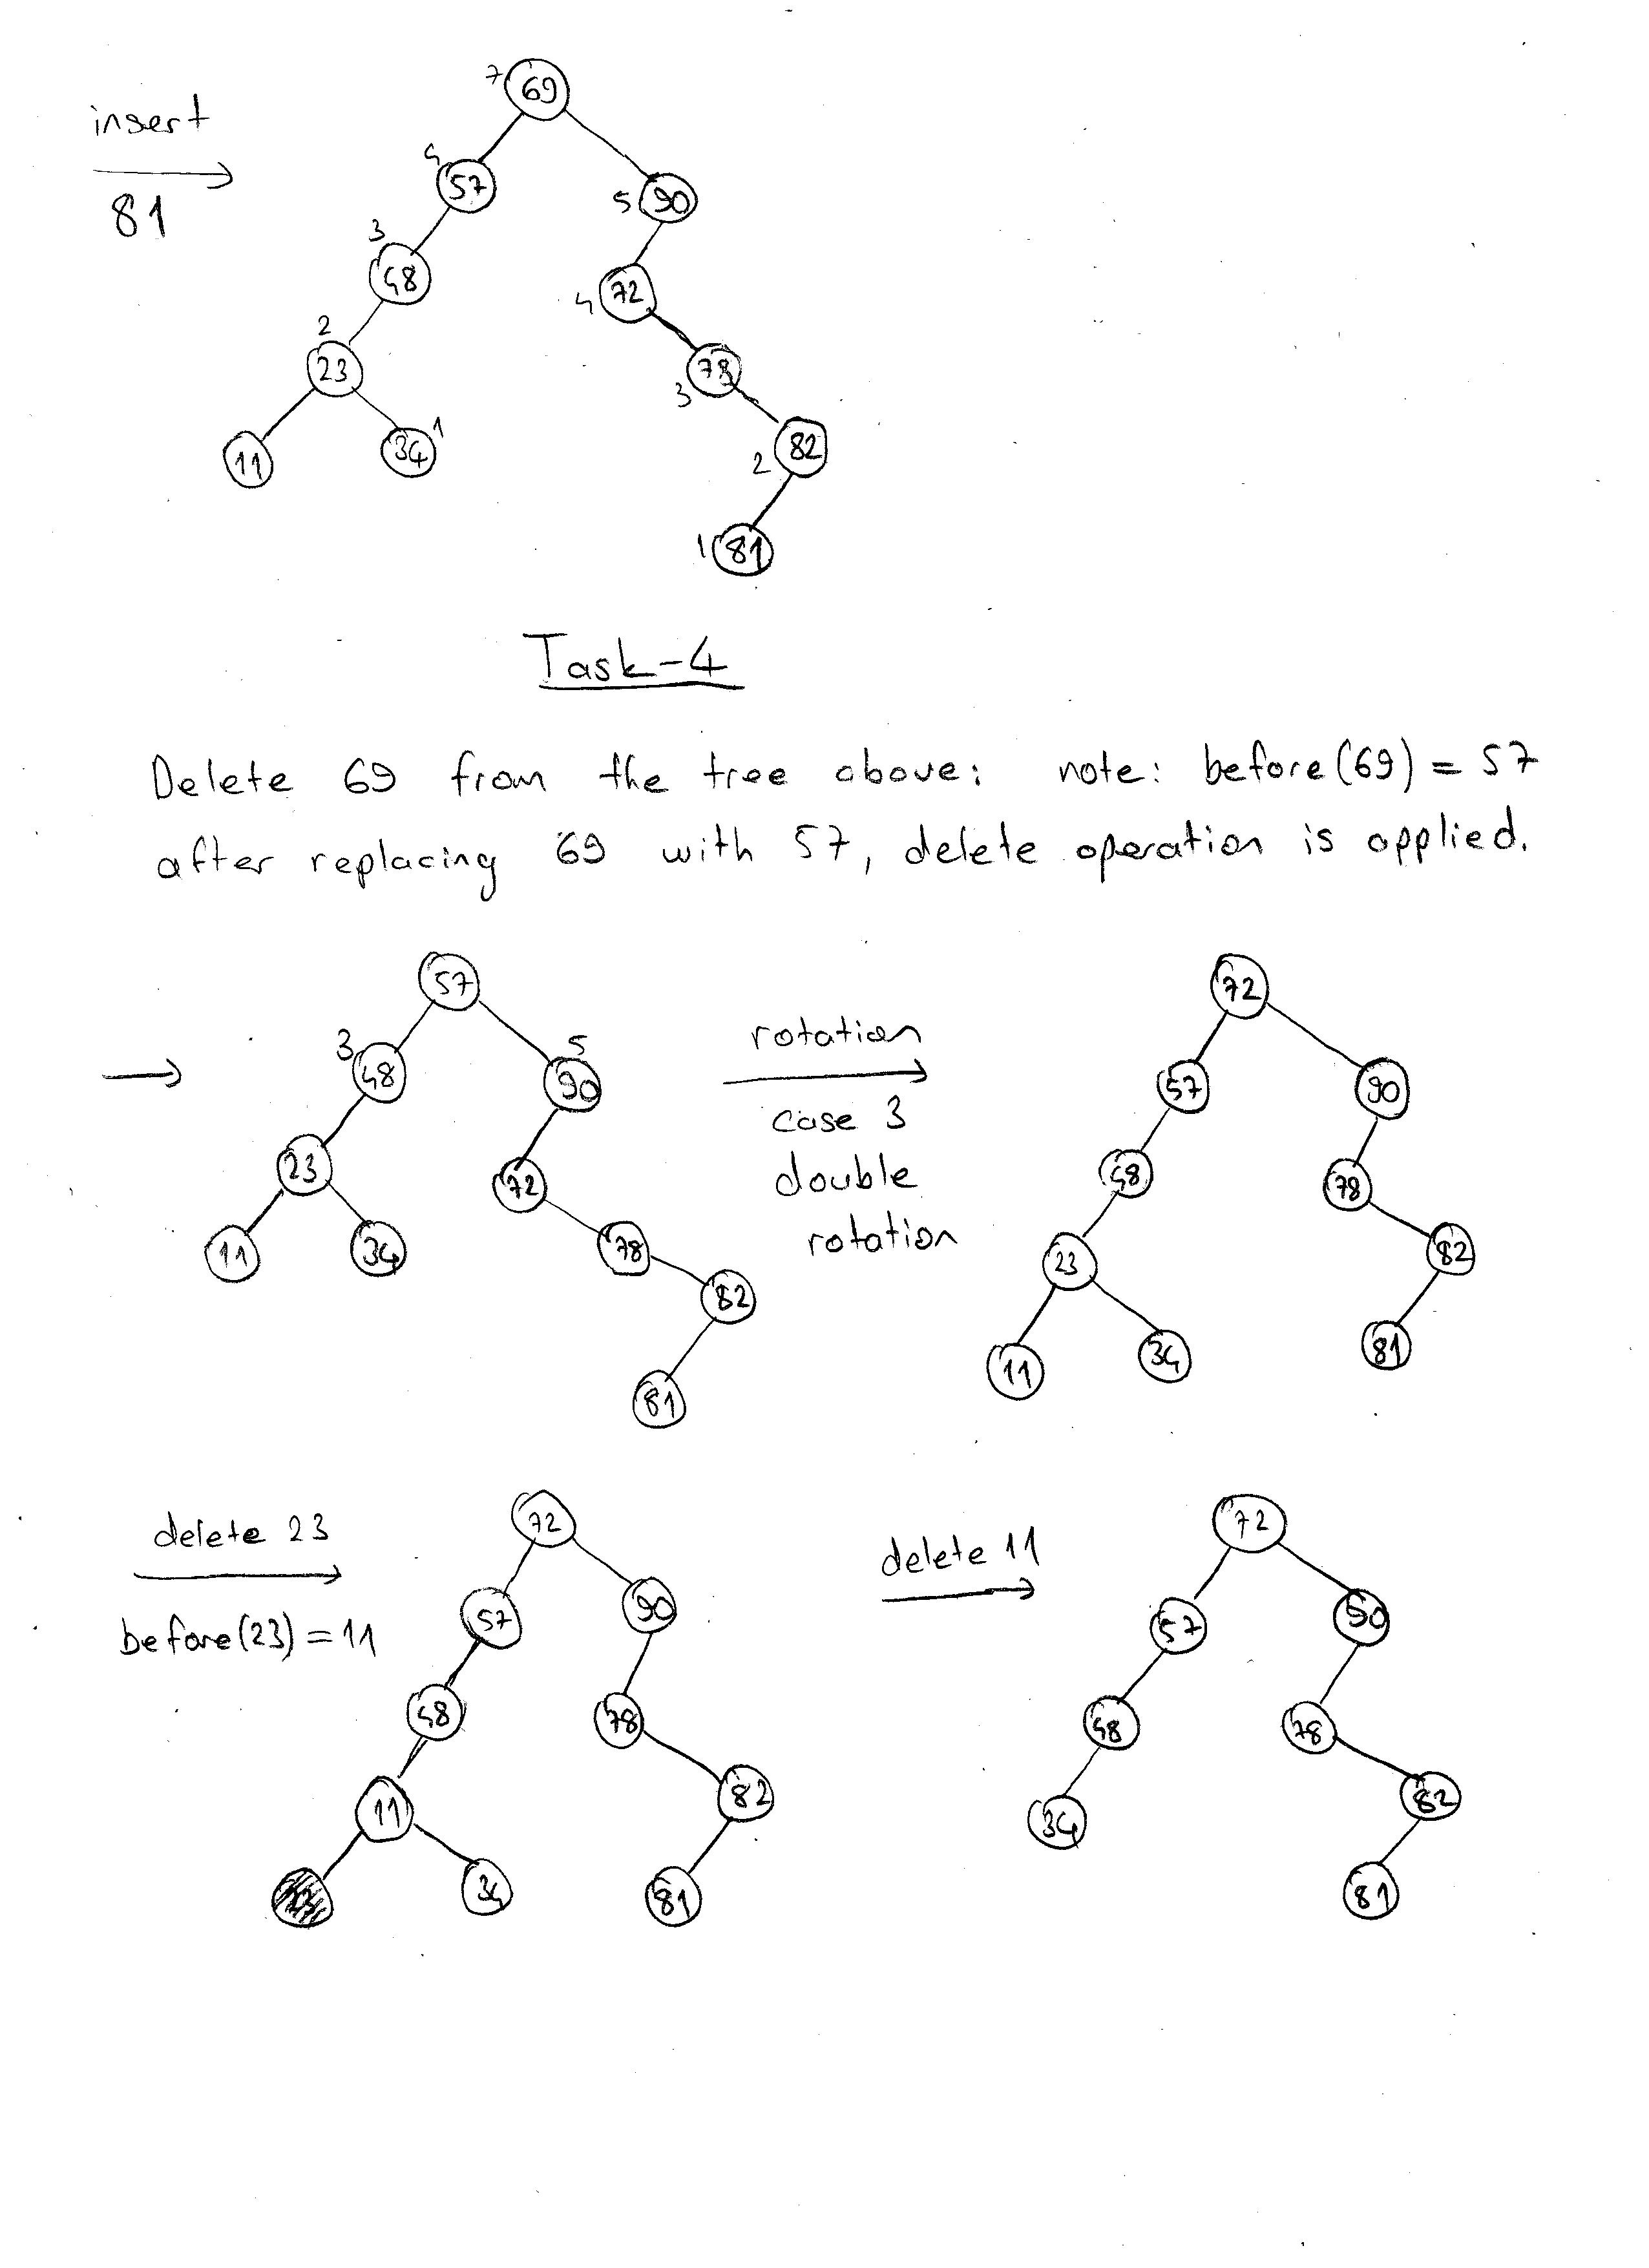 insert
81
7 69
4 57
5 90
3 48
4 72
2 23
3 78
11
34 1
2 82
1 81
Task-4
Delete 69 from the tree above: note: before(69) = 57
after replacing 69 with 57, delete operation is applied.
57
3 48
5 90
23
72
11
34
78
82
81
rotation
case 3
double
rotation
72
57
90
48
78
23
82
11
34
81
delete 23
before(23) = 11
72
57
90
48
78
11
82
34
81
delete 11
72
57
90
48
78
34
82
81